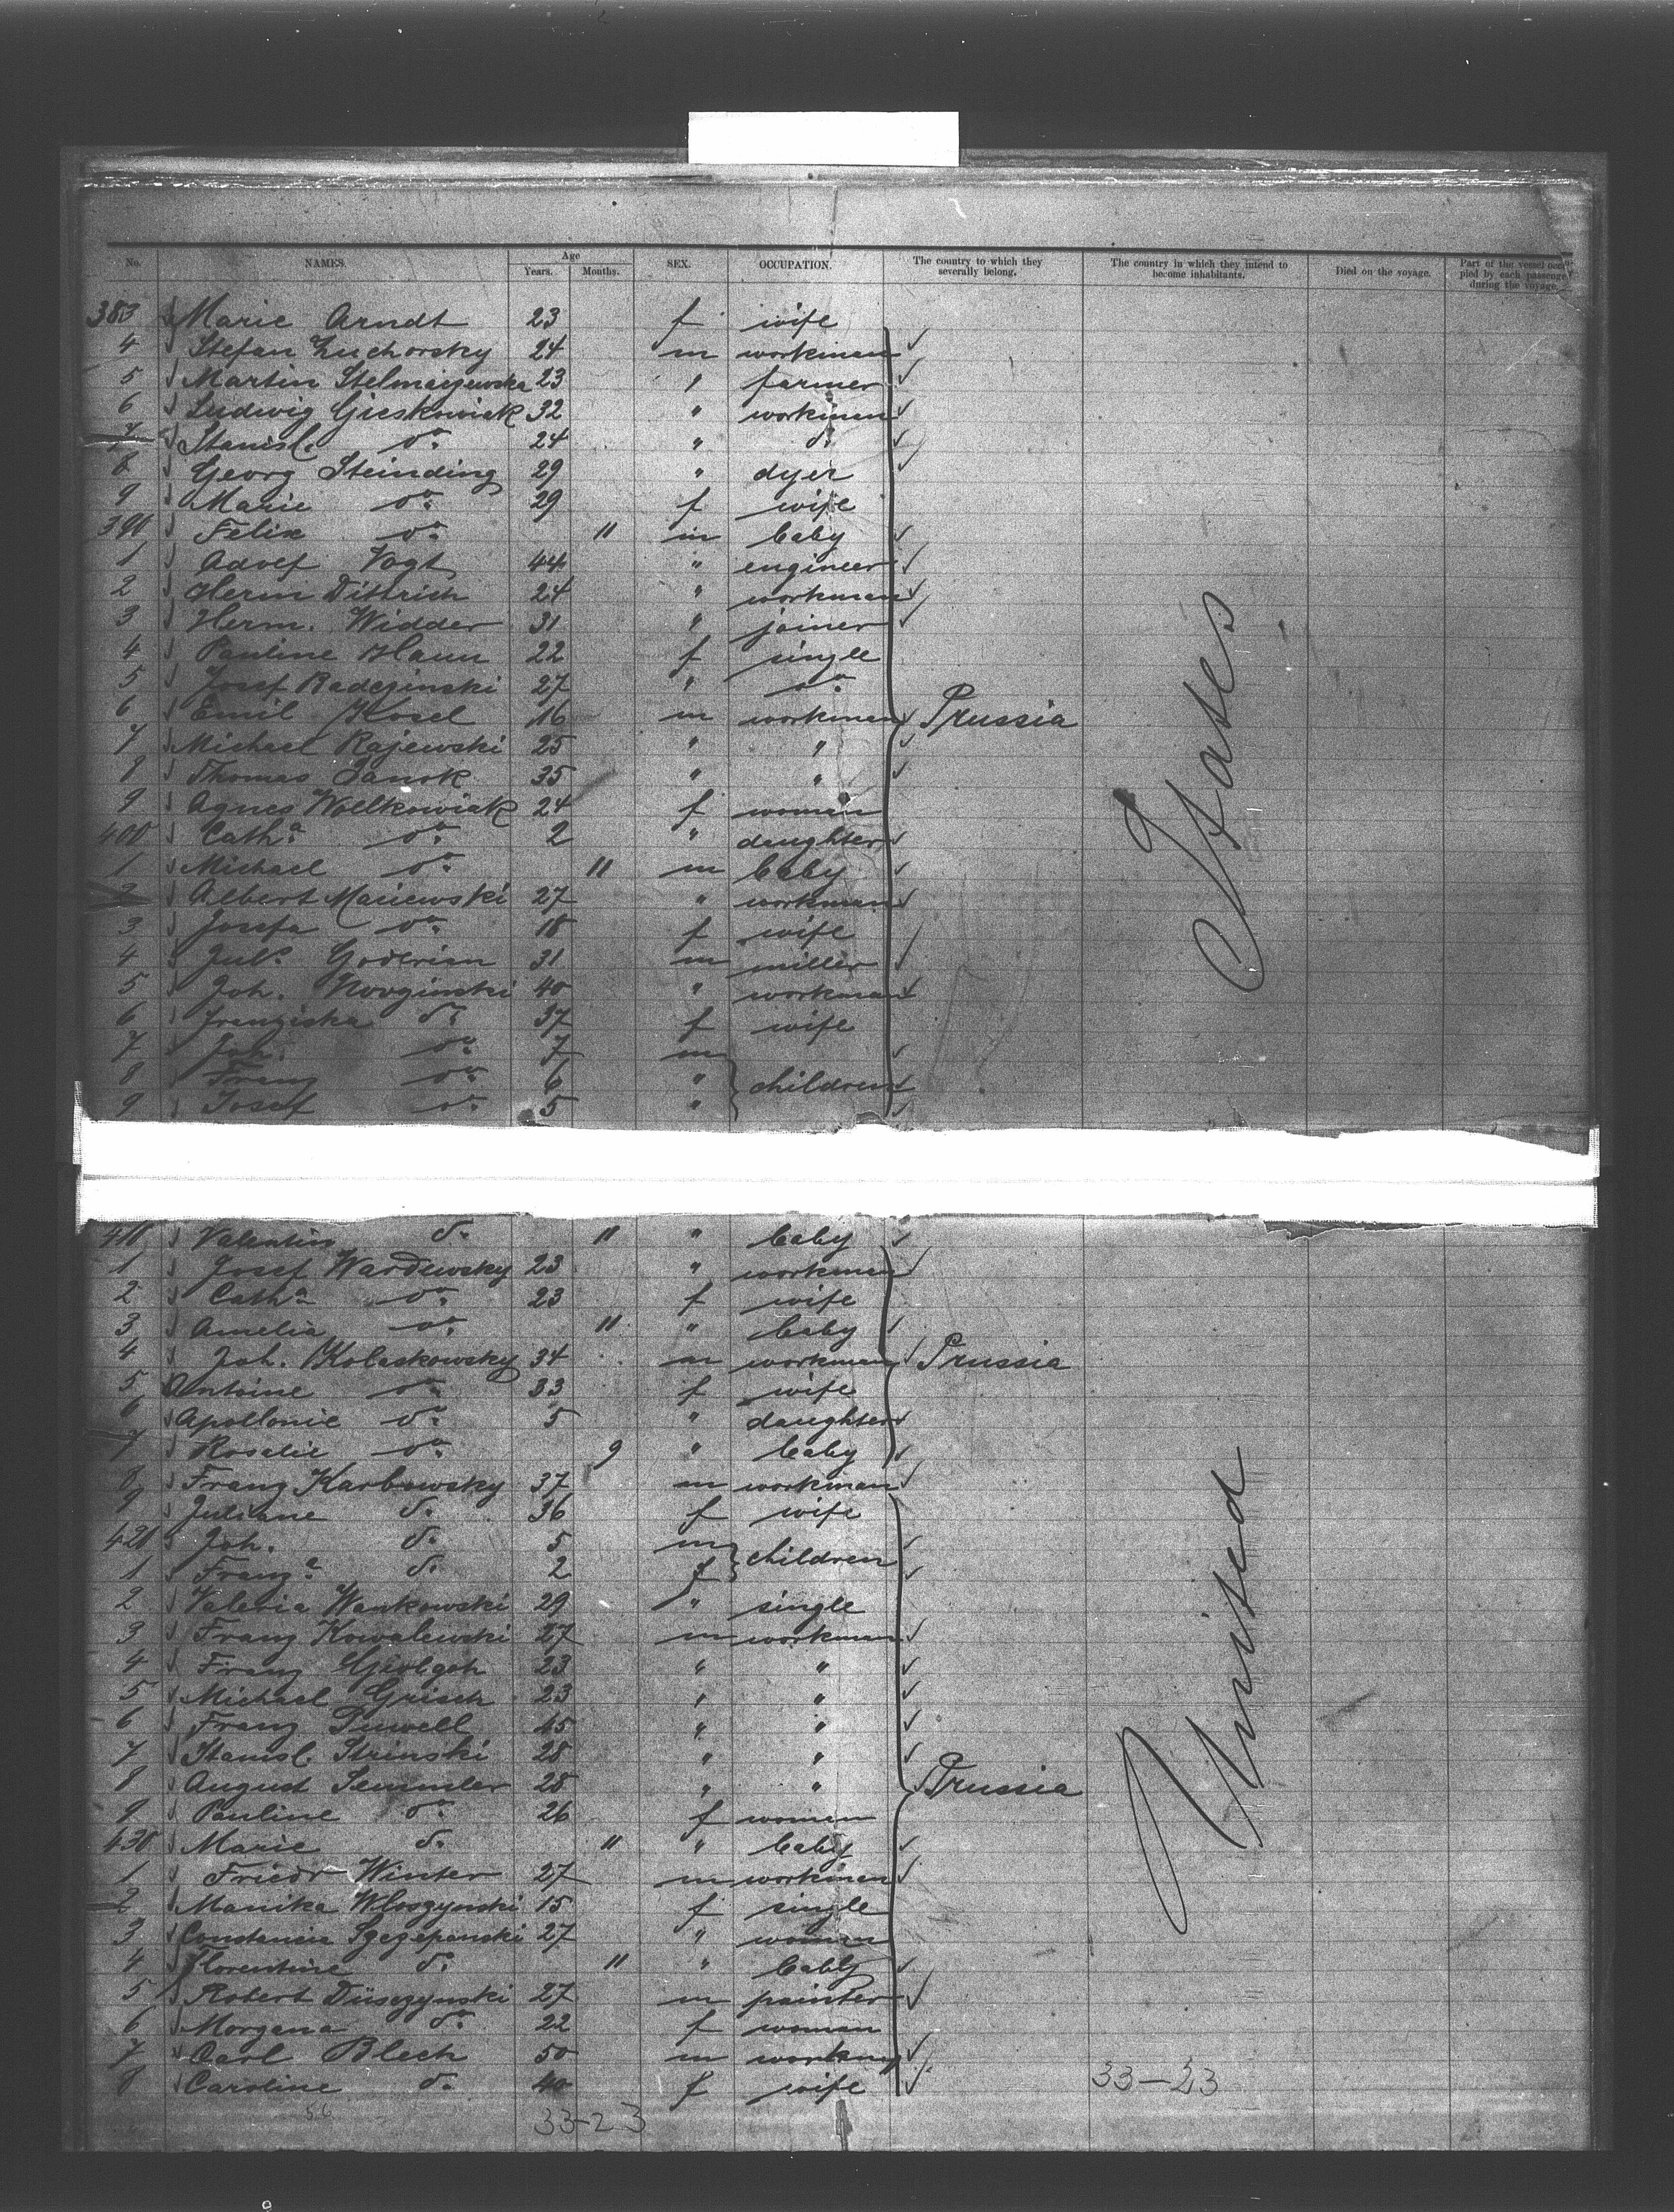 No. NAMES. Age Years. Months. SEX. OCCUPATION. The country to which they severally belong. The country in which they intend to become inhabitants. Died on the voyage. Part of the vessel occupied by each passenger during the voyage.
383 Marie Arndt 23 f wife
4 Stefan Zuchorsky 24 m workman
5 Martin Stelmaszewska 23 " farmer
6 Ludwig Gieskowiak 32 " workman
7 Stanisl. do. 24 " do.
8 Georg Steinding 29 " dyer
9 Marie do. 29 f wife
390 Felix do. 11 m baby
1 Adolf Vogt 44 " engineer
2 Herm Dittrich 24 " workman
3 Herm. Widder 31 " joiner
4 Pauline Hann 22 f single
5 Josef Radezinski 27 " do.
6 Emil Kosel 16 m workman Prussia
7 Michael Rajewski 25 " "
8 Thomas Janok 35 " "
9 Agnes Wollkowiak 24 f woman
400 Cath.a do. 2 " daughter
1 Michael do. 11 m baby
2 Albert Mariewski 27 " workman
3 Josefa do. 18 f wife
4 Juls. Goderian 31 m miller
5 Joh. Novginski 40 " workman
6 Franziska do. 37 f wife
7 Joh. do. 7 m
8 Franz do. 6 " children
9 Josef do. 5 "
410 Valentin do. 11 " baby
1 Josef Wardewsky 23 " workman
2 Cath.a do. 23 f wife
3 Amelia do. 11 " baby
4 Joh. Kolaskowsky 34 m workman Prussia
5 Antoine do. 33 f wife
6 Apollonie do. 5 " daughter
7 Rosalie do. 9 " baby
8 Franz Karbowsky 37 m workman
9 Juliane do. 36 f wife
420 Joh. do. 5 m children
1 Franz.a do. 2 f
2 Valeria Wankowski 29 " single
3 Franz Kowalewski 27 m workman
4 Franz 23 " "
5 Michael Grisch 23 " "
6 Franz Puwell 45 " "
7 Stanisl. Strinski 28 " "
8 August Semmler 28 " " Prussia
9 Pauline do. 26 f woman
430 Marie do. 11 " baby
1 Friedr Winter 27 m workman
2 Manika Wloszynski 15 f single
3 Constancia Szczepanski 27 " woman
4 Florentine do. 11 " baby
5 Robert Düsczynski 27 m painter
6 Morgana do. 22 f woman
7 Carl Blech 50 m workmg
8 Caroline do. 40 f wife
United States
33-23
56
33-23